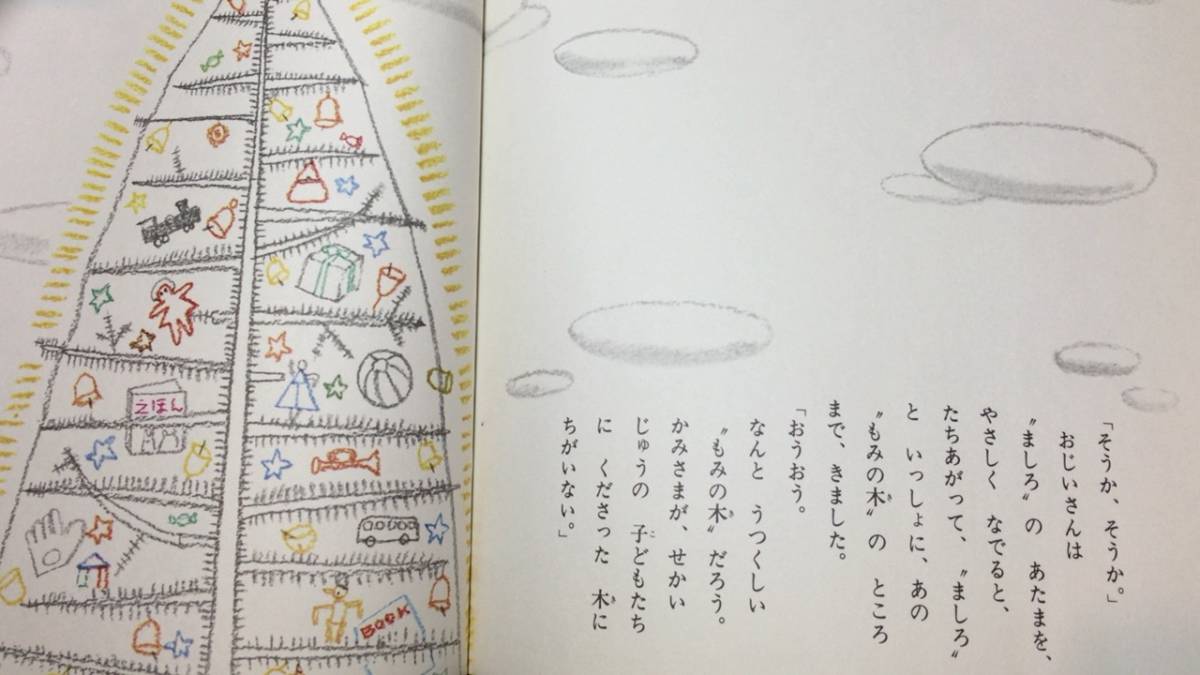 「そうか、そうか。」
おじいさんは
〝ましろ〟の あたまを、
やさしく なでると、
たちあがって、〝ましろ〟
と いっしょに、あの
〝もみの木〟の ところ
まで、きました。
「おうおう。
なんと うつくしい
〝もみの木〟だろう。
かみさまが、せかい
じゅうの 子どもたち
に くださった 木に
ちがいない。」
えほん
BOOK